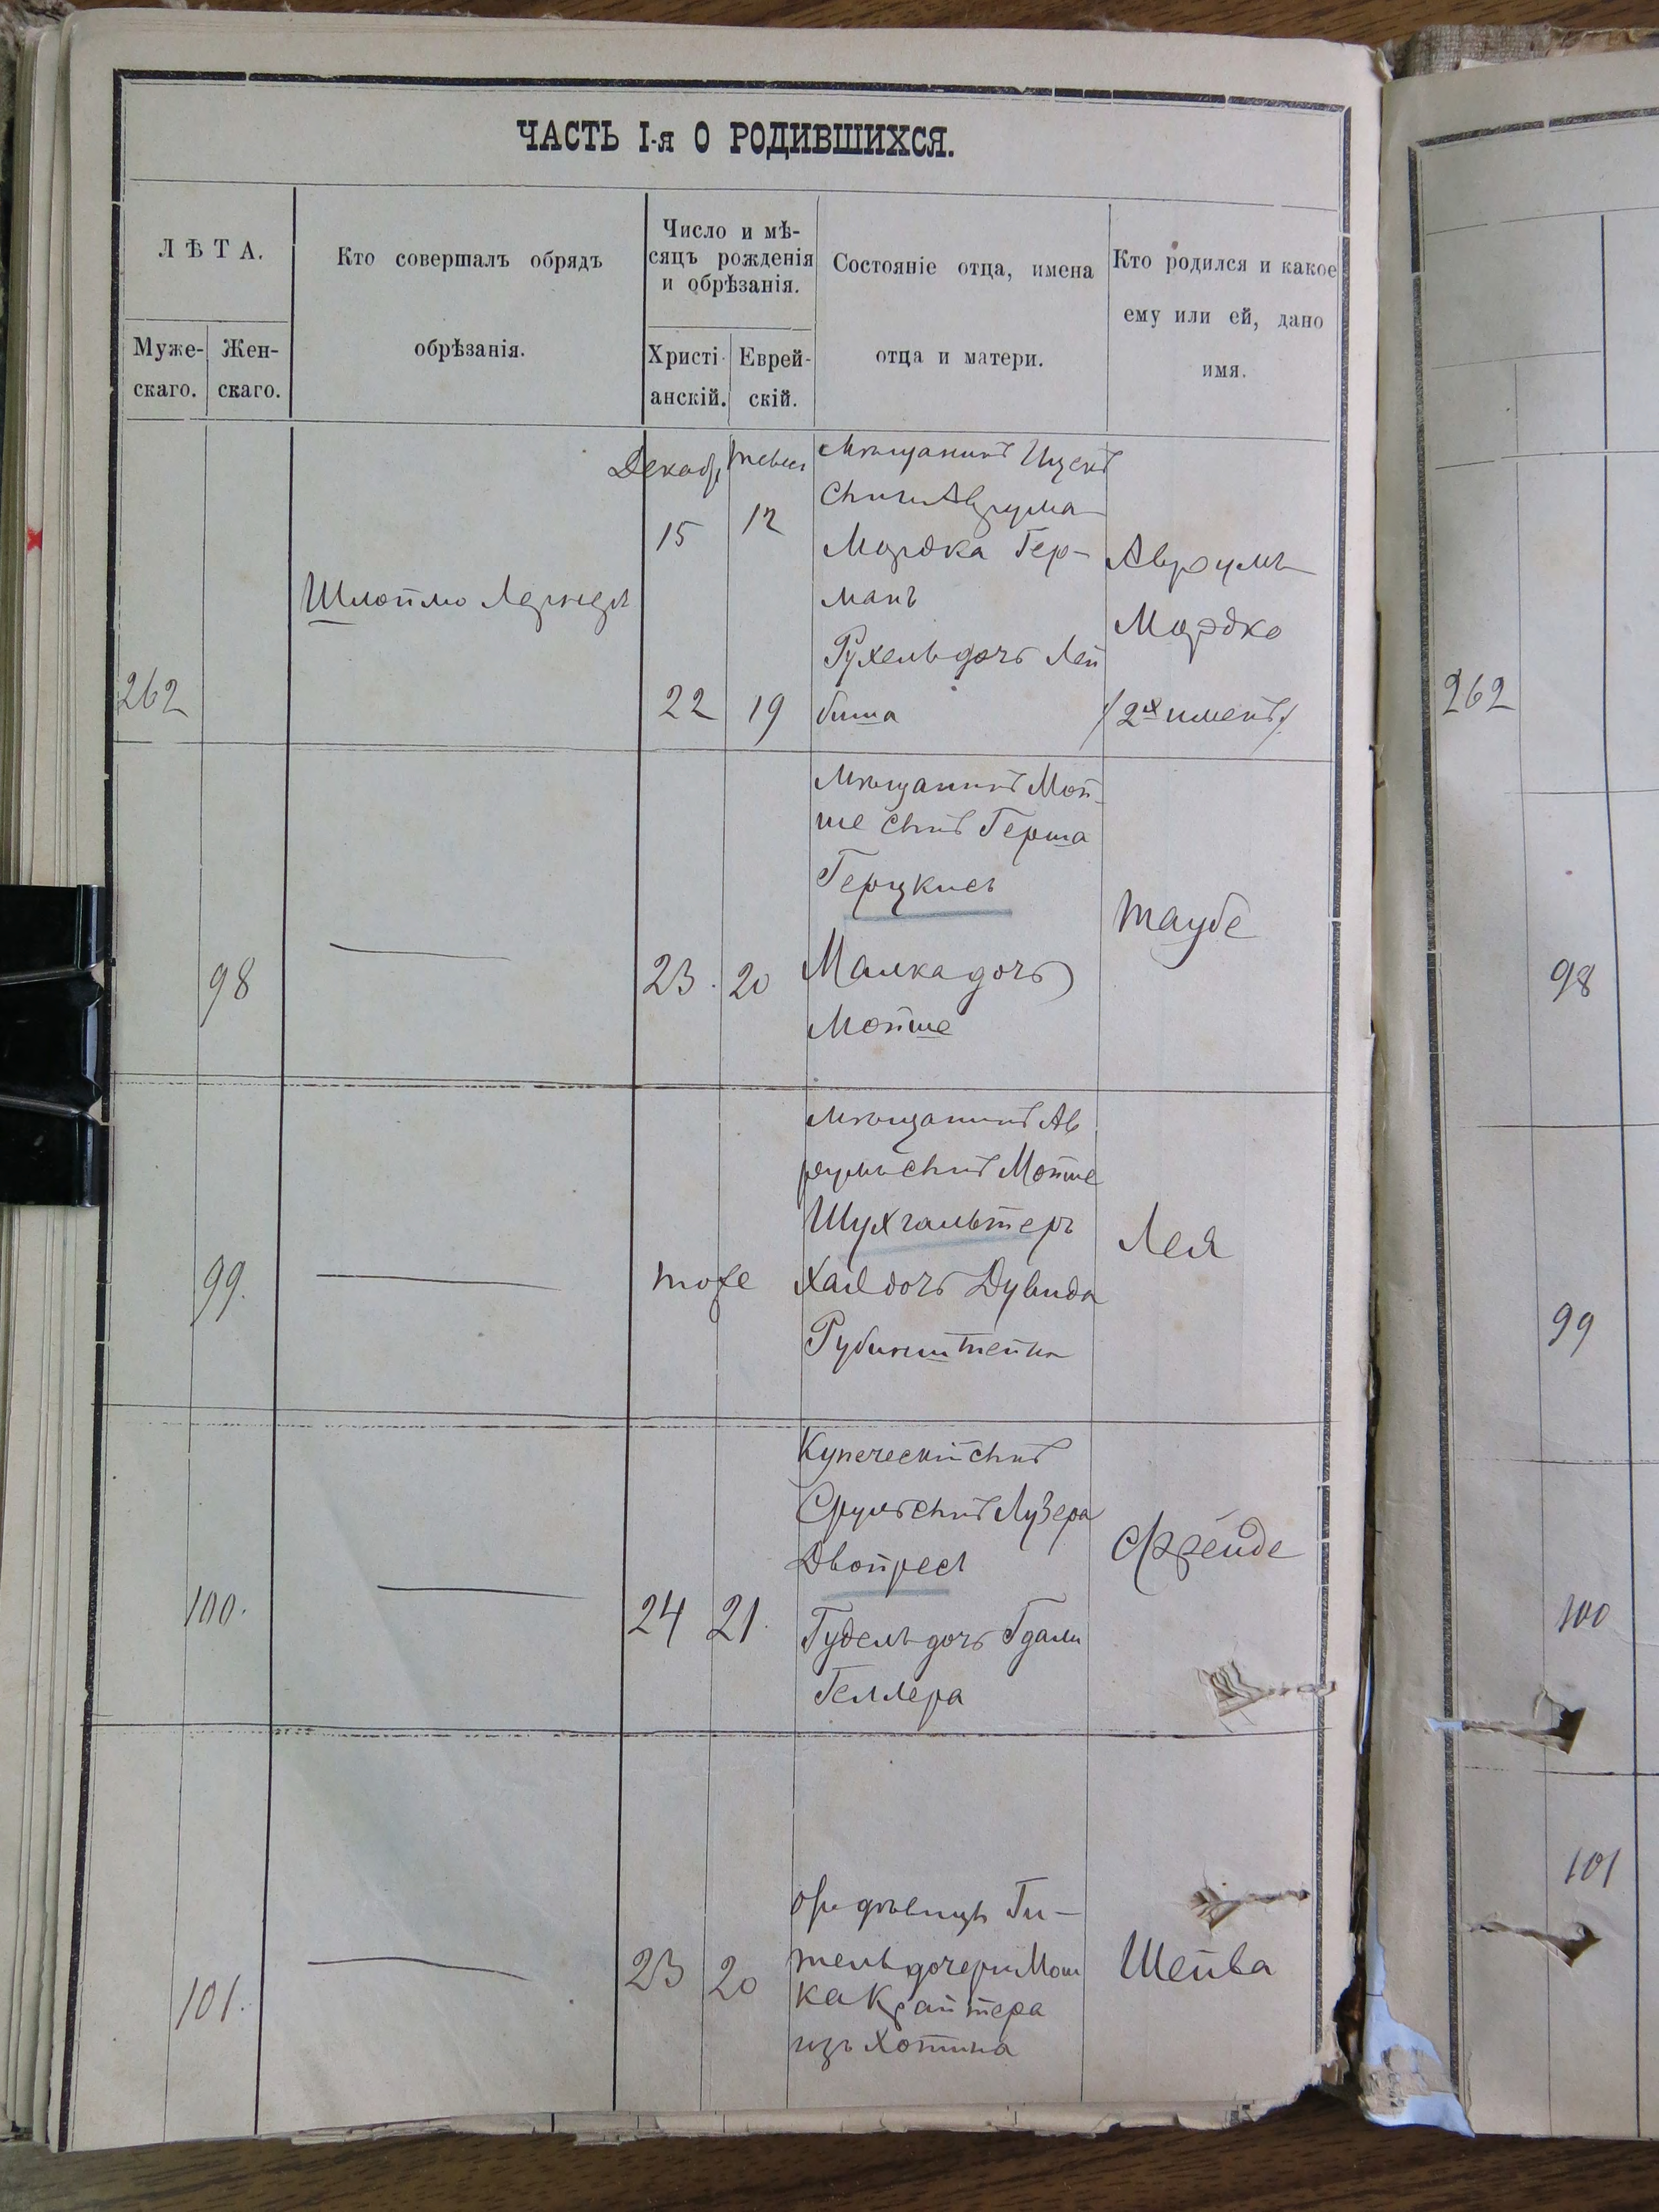 ЧАСТЬ I-я О РОДИВШИХСЯ.
ЛѢТА.
Муже-
скаго.
Жен-
скаго.
Кто совершалъ обрядъ
обрѣзанія.
Число и мѣ-
сяцъ рожденія
и обрѣзанія.
Христі-
анскій.
Еврей-
скій.
Состояніе отца, имена
отца и матери.
Кто родился и какое
ему или ей, дано
имя.
262
Шлоймо
Декабр
15
22
12
19
Мѣщанинъ
Сынъ Аврума
Мордка Гер-
манъ
Рухель дочь Лей
биша
Аврумъ
Мордко
/2хъ именъ/
262
98
23.
20
Мѣщанинъ Мой-
ше Сынъ Герша
Герцкисъ
Малка дочь
Мойше
Таубе
98
99.
тоже
Мѣщанинъ Ав
румъ Сынъ Мойше
Шухгальтеръ
Хая дочь Дувида
Рубинштейнъ
Лея
99
100.
24
21.
Купеческій Сынъ
Сруль Сынъ Лузера
Двойресъ
Гудель дочь Гдали
Геллера
Фрейде
100
101.
23
20
дѣвицы Ги-
тель дочери Мош
ка Крайтера
изъ Хотина
Шейва
101